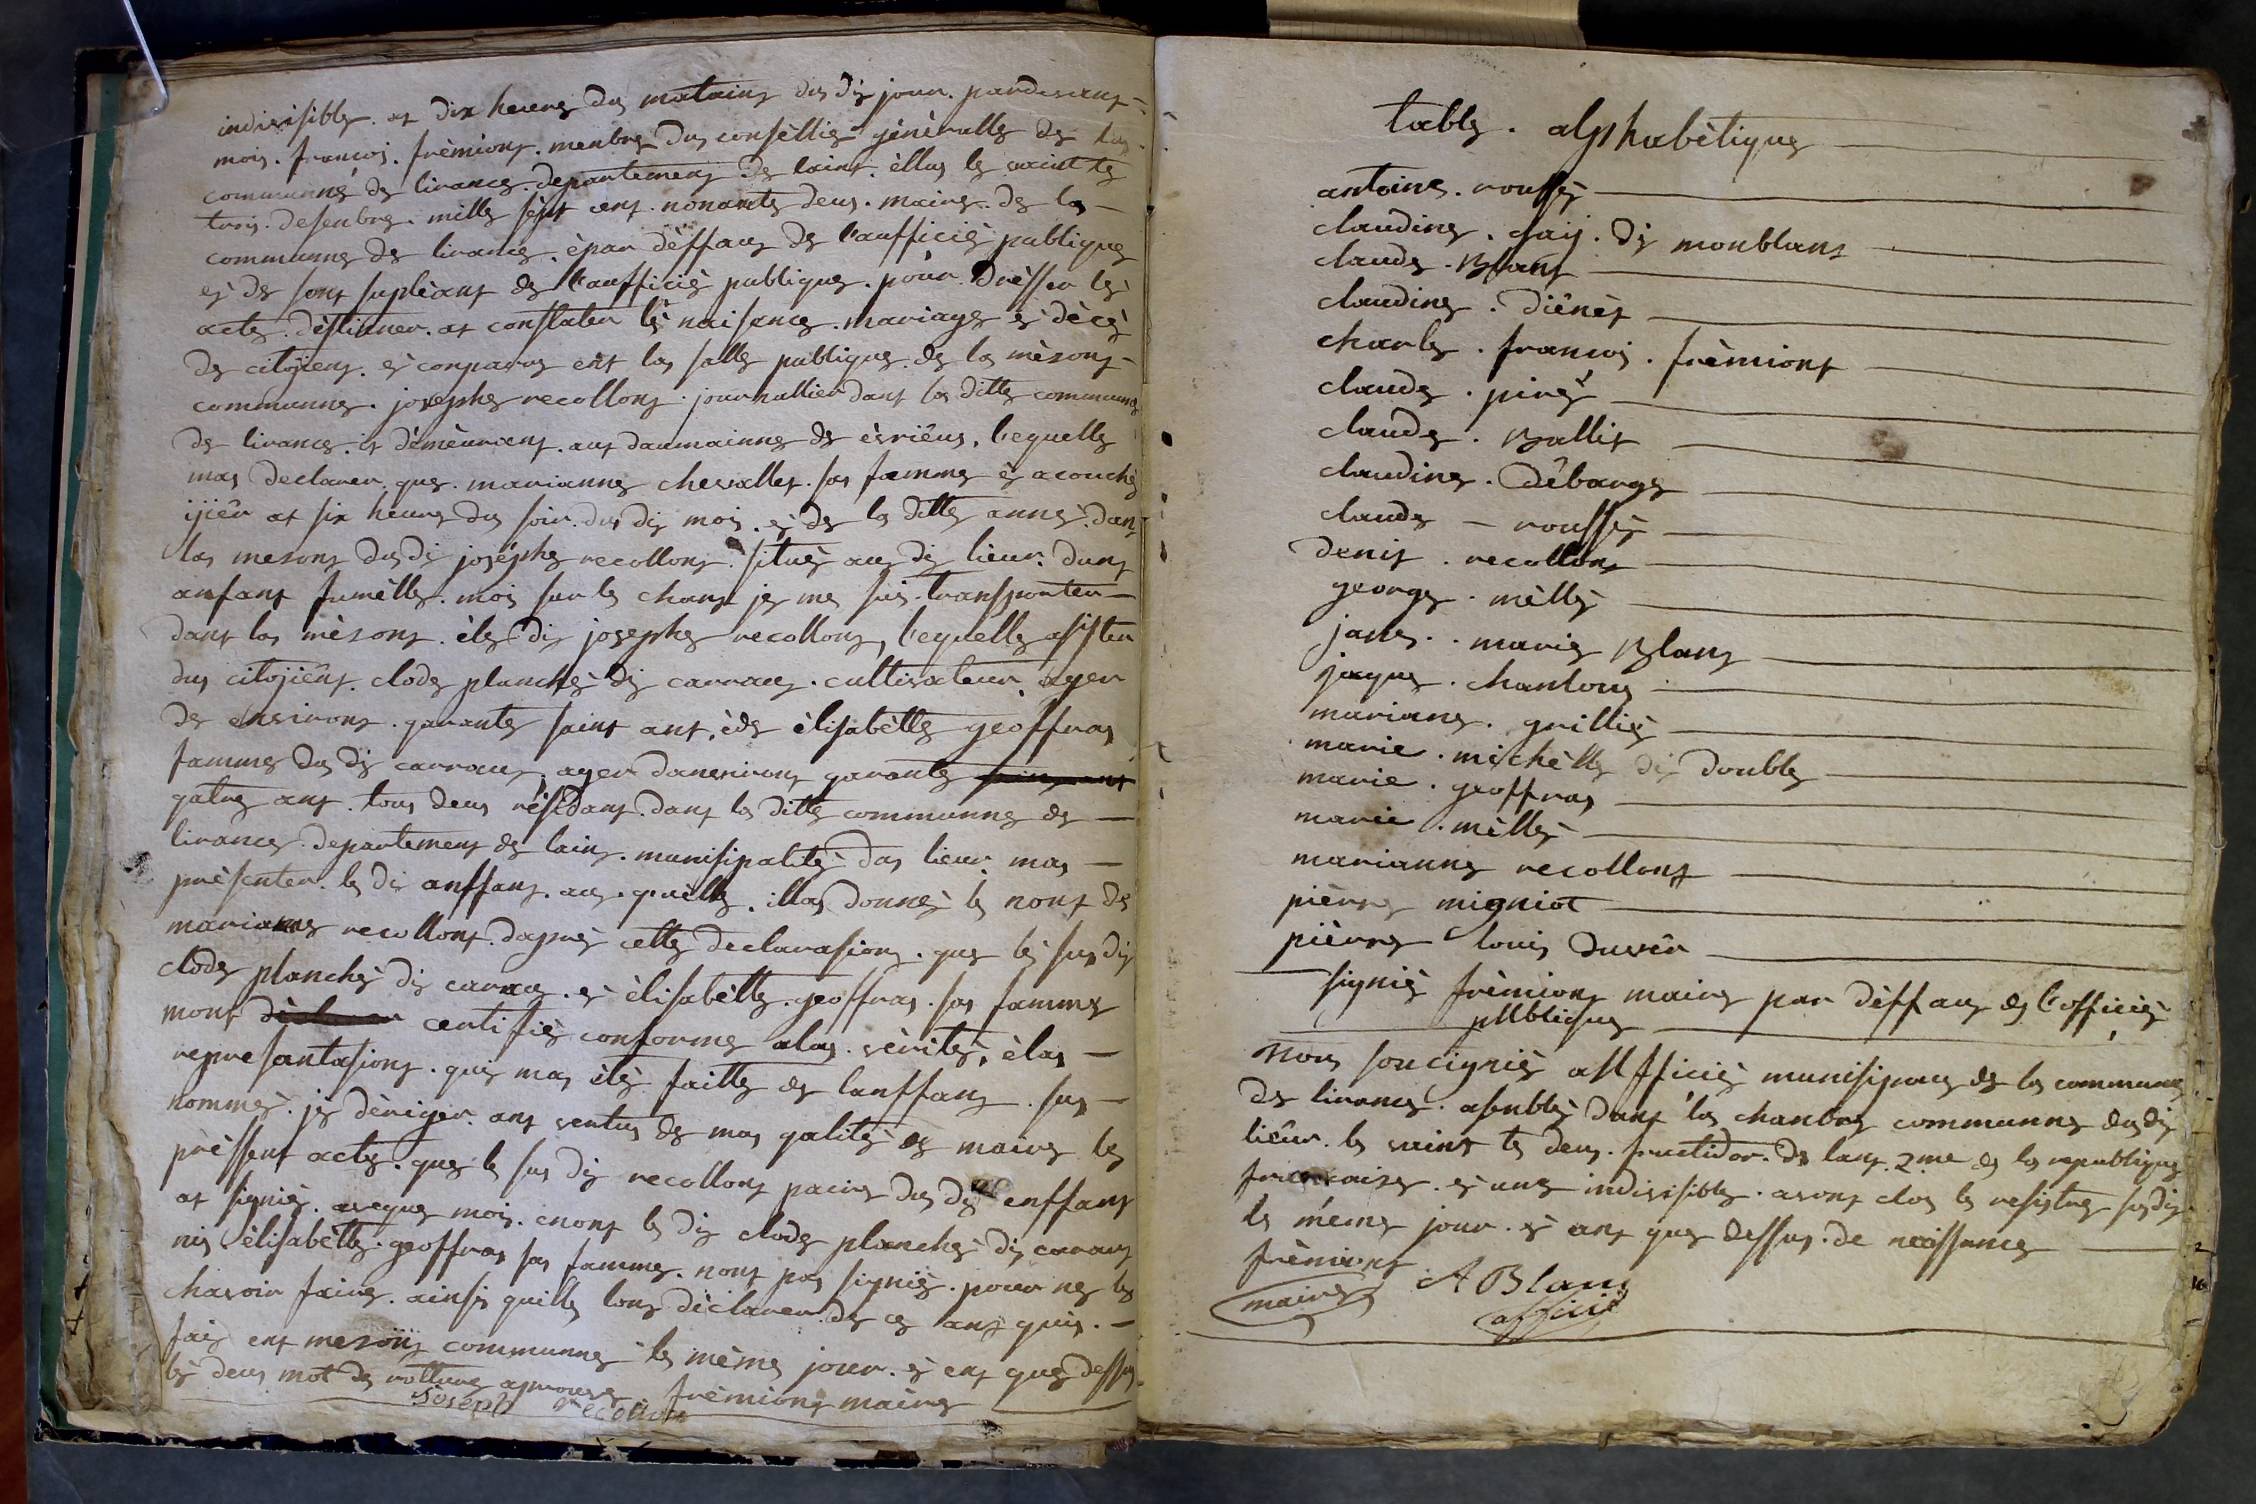 indivisible. at dix heure du matain du di jour. pardevant
mois. francoi. frèmiont. menbre du conseillie gènèralle de la
communne de livance. departement de laint. èllu le vaint te
trois. desenbre. mille sèpt cent. nonante deus. maire. de la
communne de livance. èpar dèffau de l'aufficiè publique
è de sont suplèant de l'aufficiè publique. pour. drèsser lè
acte. dèstinner. at constater lè naisance. mariage è dècè
de citoÿient. è conparu ent la salle publique de la mèsont
communne. josephe recollont. journallier dant la ditte communne
de livance. è dèmèurant. aut daumainne de èvriêux, l'equelle
ma declarer. que. marianne chevallet. sa famme è acouchè
ÿiêr at six heure du soir. du di mois. è de la ditte annè. dan
la mesont du di josèphe recollont. situè au di lieur. dunt
anfant fumèlle. mois sur le chant je me suis. transporter
dant la mèsont. èle di josephe recollont, l'equelle asister
du citoÿiênt. clode planchè di carrau. cultivateur. ager
de environt. quarante saint ant, ède èlisabètte geoffras
famme du di carrau. ager danviront quarante saint ant
quatre ant. tous deus rèsidant. dant la ditte communne de
livance. departement de laint. munisipalitè du lieur ma
prèsenter. le di anffant. au. quelle. illa donnè le nont de
marianne recollont. daprè cette declarasiont. que lè susdi
clode planchè di carrau. è èlisabètte. geoffras. sa famme
mont dèclarer certifiè conforme ala. vèritè, èla
represantasiont. qui ma ètè faitte de lanffant. sus
nommè. je dèriger. ant vertus de ma qalitè de maire le
prèssent acte. que le sus di recollont paire du di enffant
at signiè. aveque mois. enont le di clode planchè di carrau
ni èlisabètte. geoffras sa famme. nont pas signiè. pour ne le
chavoir faire. ainsi quille lont dèclarer. de ce ant quis.
fait ent mesont communne le même jour. è ent que dessus
lè deus mot de rotture aprouve. frèmiont maire
Joseph recollon
table. alphabètique
antoine. roussè
claudine. gaij. di monblant
claude. Blant
claudine. Diênèt
charle. francoi. frèmiont
claude. pirè
claude. Ballit
claudine. Dêbarge
claude – roussè
denit. recollont
george. mèllè
jane. marie Blant
jaque. chanlout
mariane. grilliè
marie. michèlle di double
marie. geoffras
marie. mèllè
marianne recollont
pièrre migniot
pièrre louis duvêr
signiè frèmiont maire par dèffau de l'officiè
publique
nous soucigniè aufficiè munisipau de la communne
de livance. asenblè dant la chanbre communne dudi
liêur. le vaint te deus. fructidor. de lant 2.me de la republique
francaise. è une indivisible. avont clos le resistre susdi
le même jour. è ant que dessus. de naissance
frèmiont
maire
A Blanc
officiè